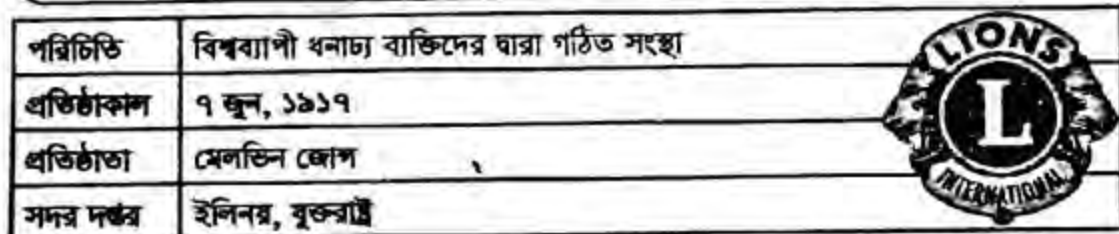 পরিচিতি বিশ্বব্যাপী ধনাঢ্য ব্যক্তিদের দ্বারা গঠিত সংস্থা
প্রতিষ্ঠাকাল ৭ জুন, ১৯১৭
প্রতিষ্ঠাতা মেলভিন জোন্স
সদর দপ্তর ইলিনয়, যুক্তরাষ্ট্র
LIONS
L
INTERNATIONAL